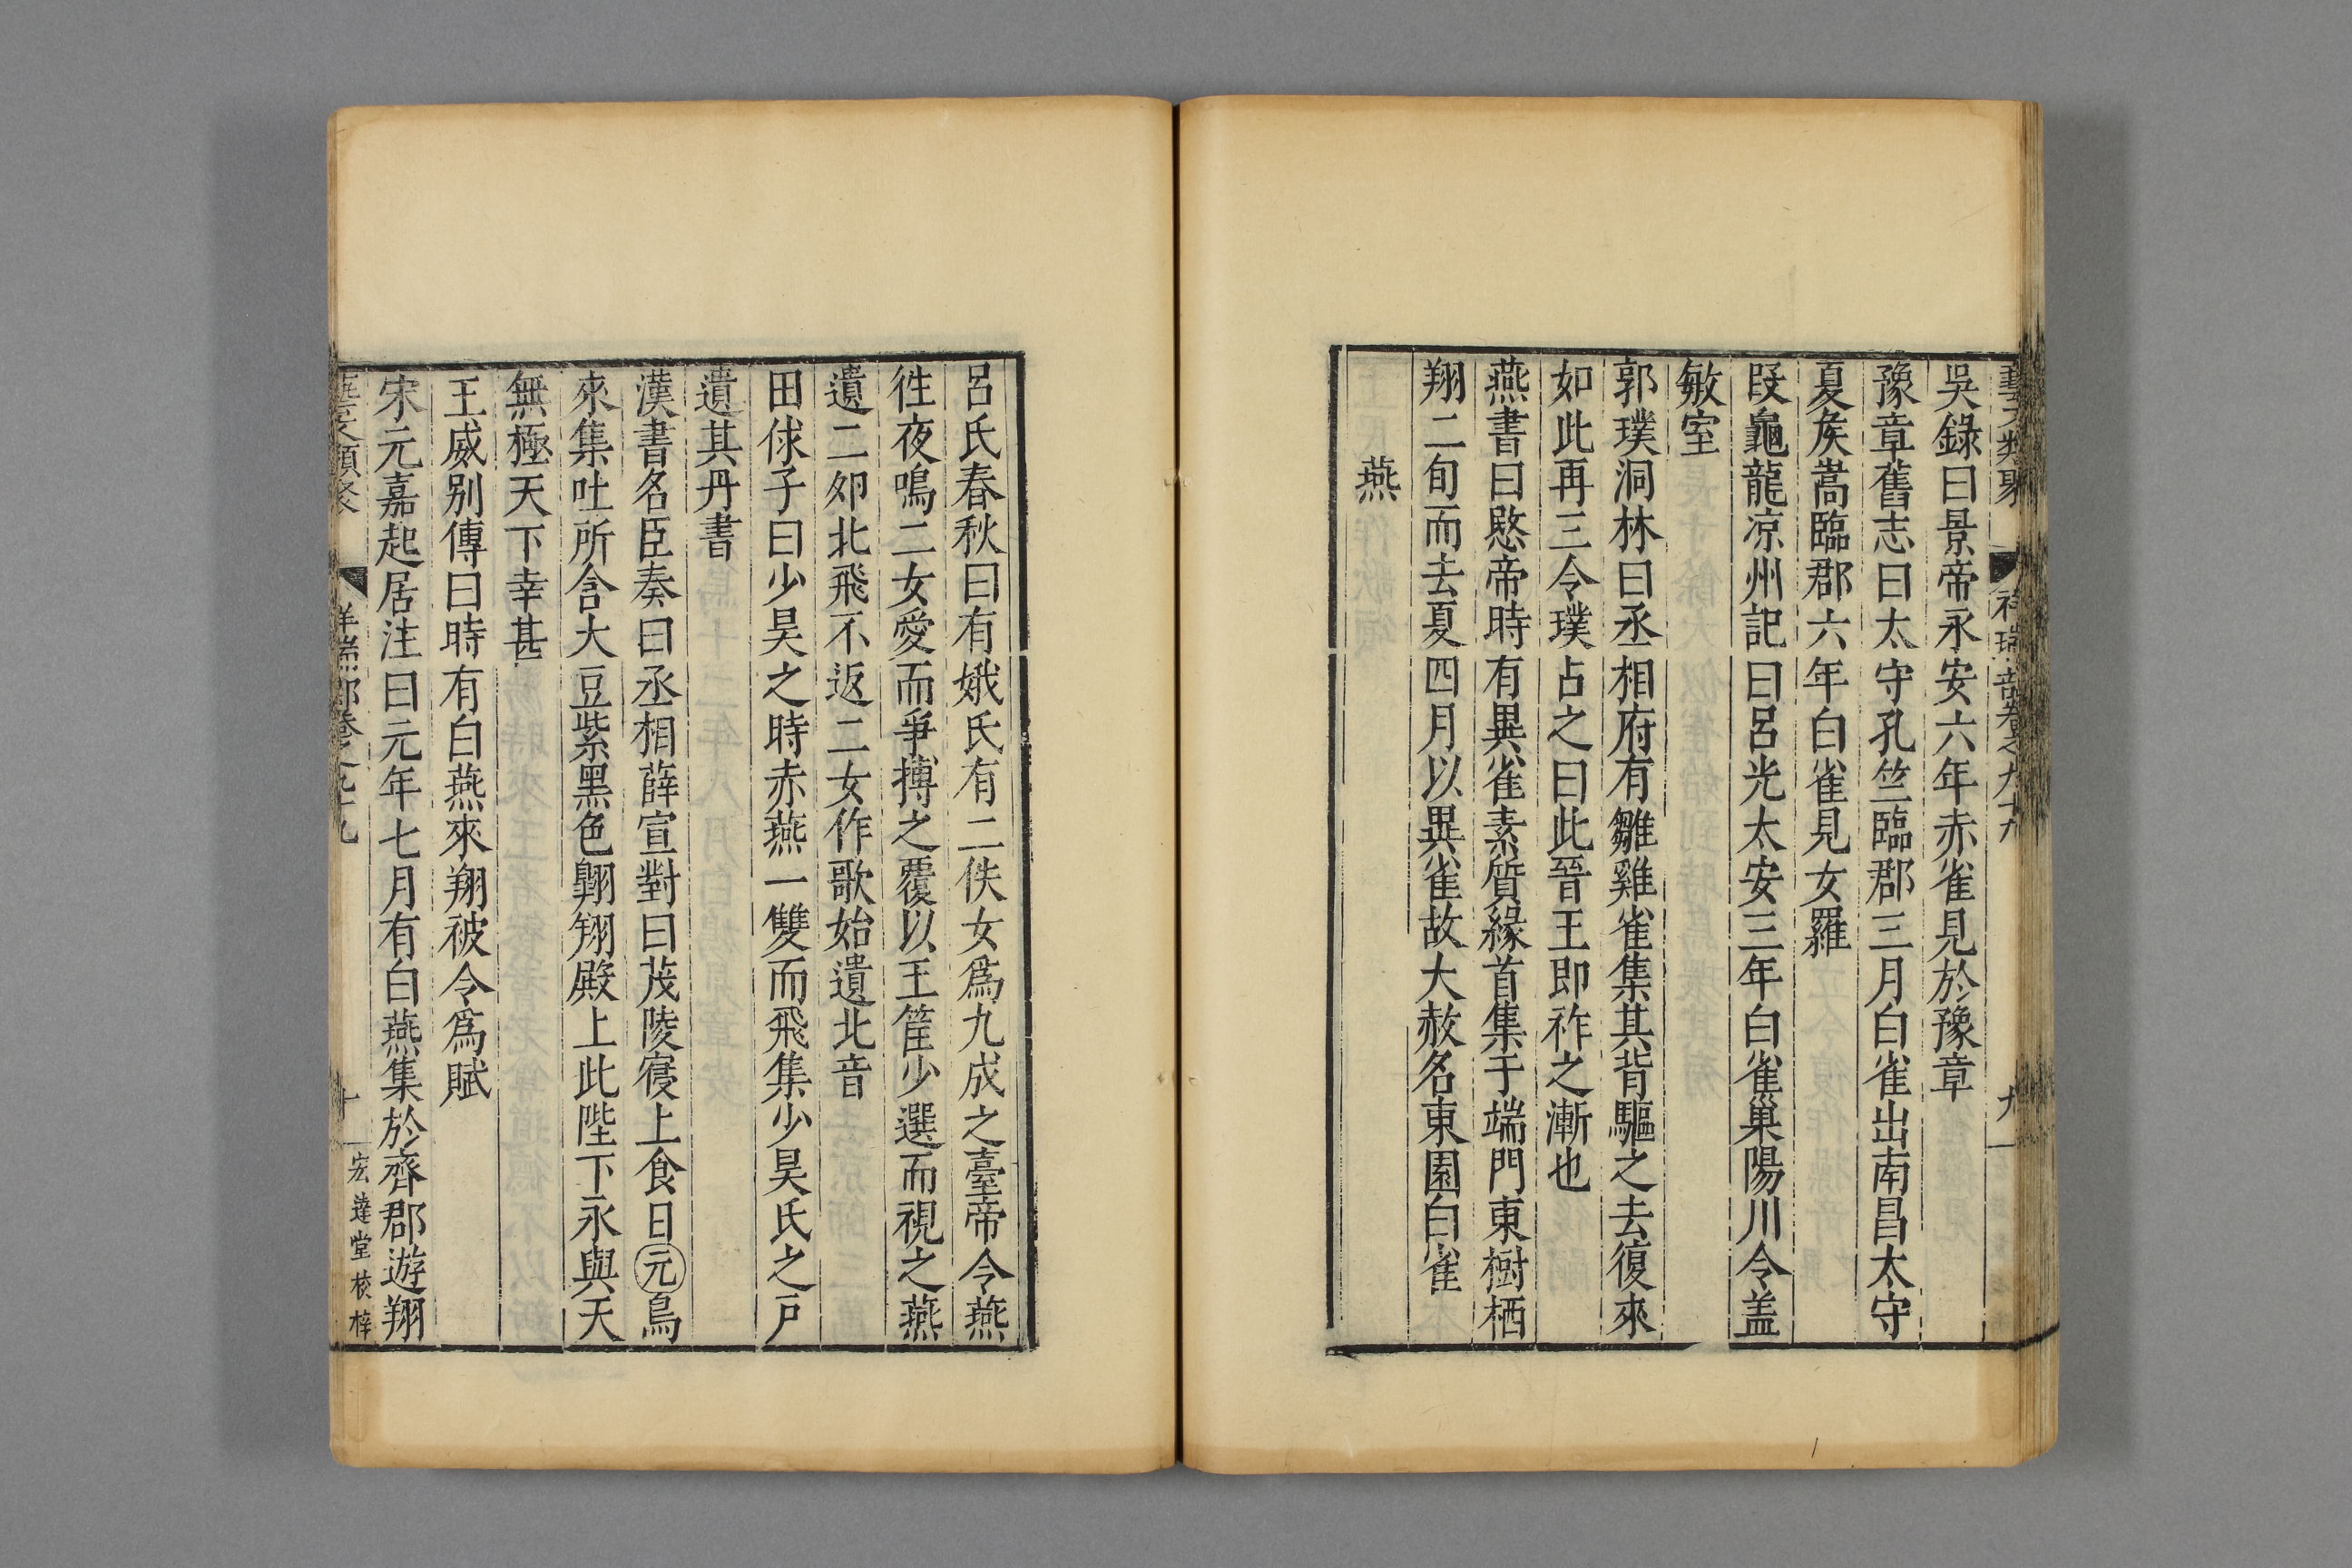 藝文類聚 祥瑞部卷之九十九 九
吳錄曰景帝永安六年赤雀見於豫章
豫章舊志曰太守孔竺臨郡三月白雀出南昌太守
夏矦嵩臨郡六年白雀見女羅
叚龜龍凉州記曰呂光太安三年白雀巢陽川令盖
敏室
郭璞洞林曰丞相府有雛雞雀集其背驅之去復來
如此再三令璞占之曰此晉王即祚之漸也
燕書曰愍帝時有異雀素質緣首集于端門東樹栖
翔二旬而去夏四月以異雀故大赦名東園白雀
燕
呂氏春秋曰有娥氏有二佚女爲九成之臺帝令燕
徃夜鳴二女愛而爭搏之覆以王筐少選而視之燕
遺二夘北飛不返二女作歌始遺北音
田俅子曰少昊之時赤燕一雙而飛集少昊氏之戶
遺其丹書
漢書名臣奏曰丞相薛宣對曰茂陵寑上食日元鳥
來集吐所含大豆紫黑色翺翔殿上此陛下永與天
無極天下幸甚
王威别傳曰時有白燕來翔被令爲賦
宋元嘉起居注曰元年七月有白燕集於齊郡遊翔
藝文類聚 祥瑞部卷之九十九 十 宏達堂校梓